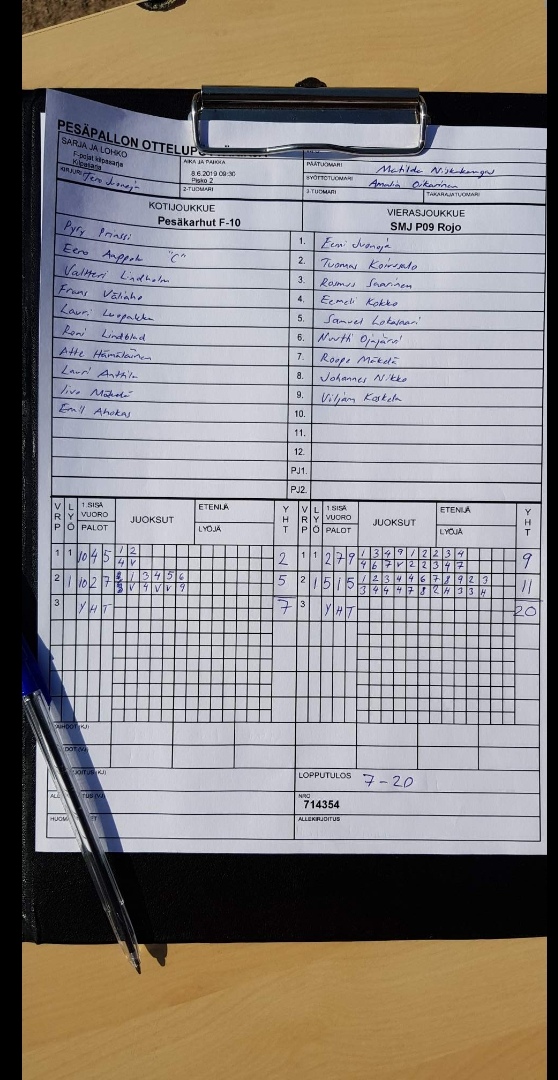 PESÄPALLON
SARJA JA LOHKO
F-pojat kilpasarja
Kilpasarja
KIRJURI Tero Juonoja
AIKA JA PAIKKA
8.6.2019 09:30
Pisko 2
2-TUOMARI
PÄÄTUOMARI Matilda Niskakangas
SYÖTTÖTUOMARI Amalia Oikarinen
3-TUOMARI TAKARAJATUOMARI
KOTIJOUKKUE
Pesäkarhut F-10
VIERASJOUKKUE
SMJ P09 Rojo
Pyry Prinssi 1. Eemi Juonoja
Eero Anppola "C" 2. Tuomas Koivusalo
Valtteri Lindholm 3. Rasmus Saarinen
Frans Väliaho 4. Eemeli Kokko
Lauri Luopakka 5. Samuel Lokasaari
Roni Lindblad 6. Nuutti Ojajärvi
Atte Hämäläinen 7. Roope Mäkelä
Lauri Anttila 8. Johannes Nikko
Iivo Mäkelä 9. Viljam Koskela
Emil Ahokas 10.
11.
12.
PJ1.
PJ2.
VRP LYÖ 1 SISÄ VUORO PALOT JUOKSUT ETENIJÄ LYÖJÄ YHT VRP LYÖ 1 SISÄ VUORO PALOT JUOKSUT ETENIJÄ LYÖJÄ YHT
1 1 10 4 5 1 2 2 1 1 2 7 9 1 3 4 9 1 2 2 3 4 9
4 V 4 6 7 V 2 2 3 4 7
2 1 10 2 7 1 3 4 5 6 5 2 1 5 1 5 1 2 3 4 4 6 7 8 9 2 3 11
V 4 V V 9 3 4 4 4 7 8 2 H 3 3 H
3 YHT 7 3 YHT 20
LOPPUTULOS 7-20
NRO
714354
ALLEKIRJOITUS